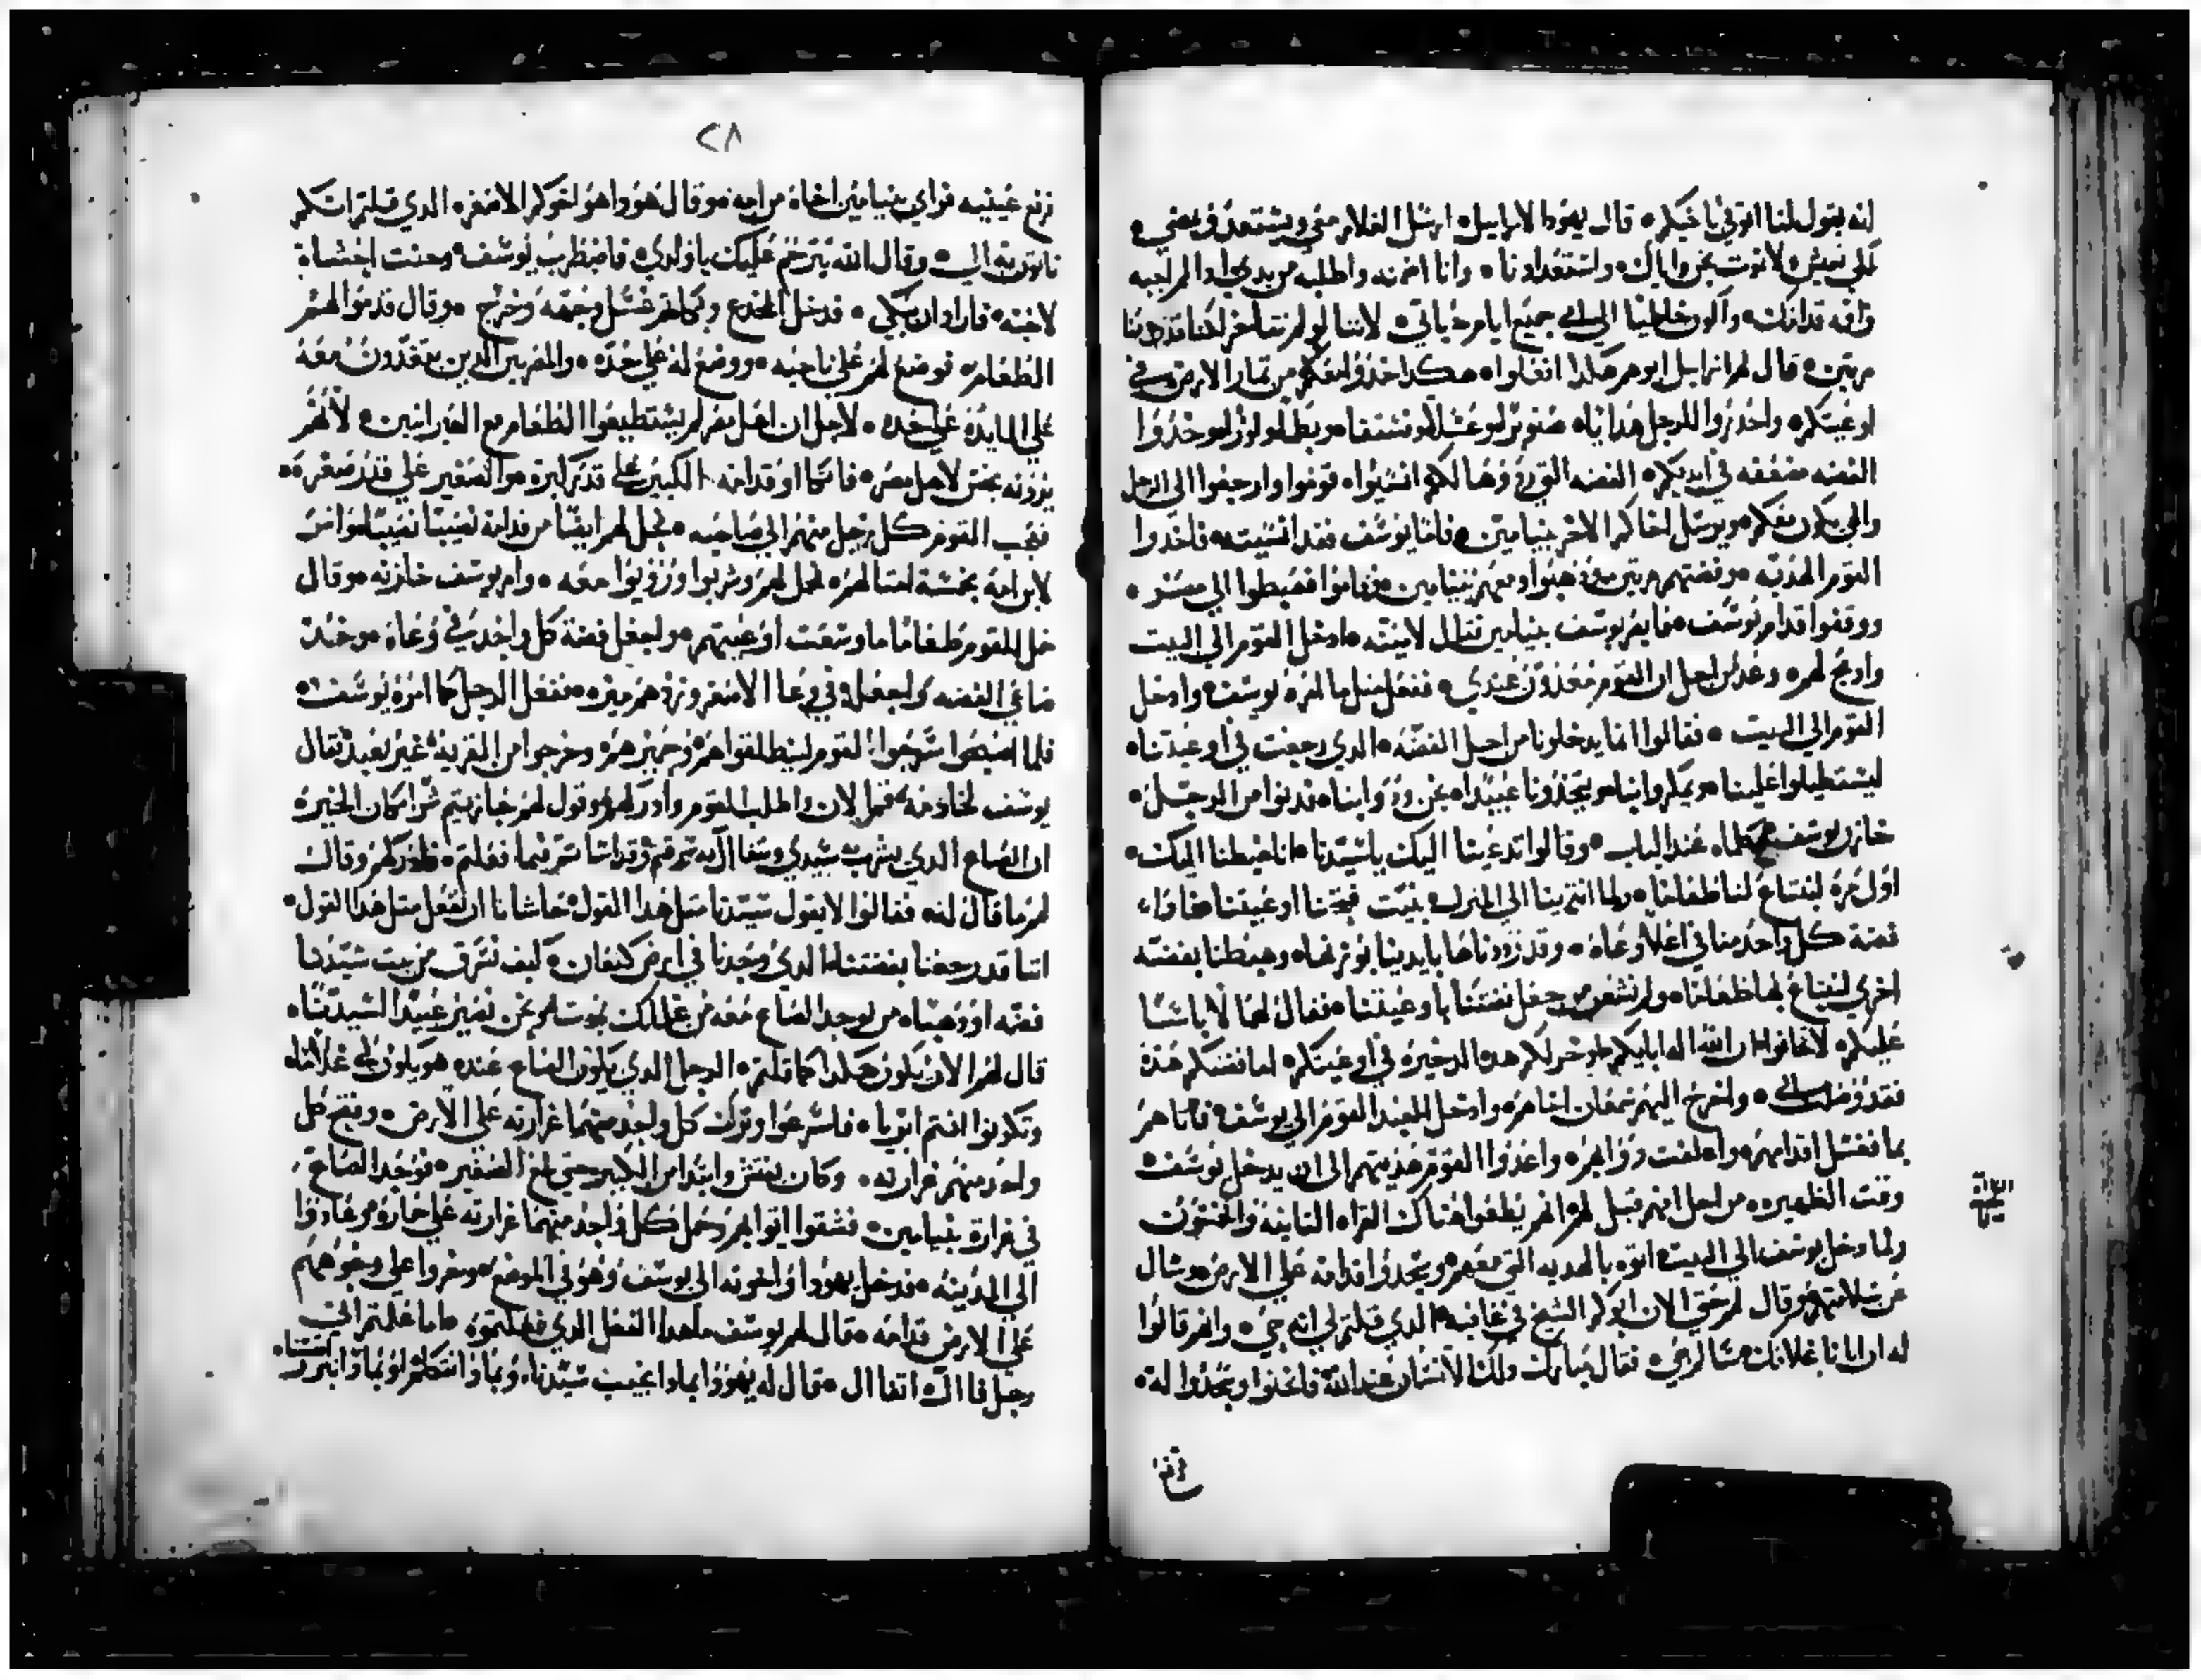 انه يقول لنا اتوني باخيكم • قال يهودا لاسراييل • ارسل الغلام معي ويستعد ونمضي •
لكي نعيش • لا نموت نحن واياك • واستعدادنا • وانا اضمنه واطلبه من يدي اذا لم اجيبه
واقفه قدامك • واكون خاطيا الي ابي جميع ايام حياتي • لاننا لو لم نتاخر لكنا قد جينا
مرتين • قال لهم اسراييل ابوهم هكذا افعلوا • هكدا خدوا معكم من تمار الارض في
اوعيتكم • واحدروا للرجل هدايا • صنوبر او عسلا
الفضه مضعفه في ايديكم • الفضه التي ردوها لكم انسيوا • قوموا وارجعوا الي الرجل
والهي يكون معكم • ويرسل اخاكم الاخر بنيامين • فاما يوسف فقد انسيته • فاخدوا
القوم الهديه • وفضتهم مرتين • ودهبوا ومعهم بنيامين • وقاموا فهبطوا الي مصر •
ووقفوا قدام يوسف • فابصر يوسف بنيامين فقال لابنته • ادخل القوم الي البيت
وادبح لهم • وعد من اجل ان القوم متغدون عندي • ففعل مثل ما امره يوسف • وادخل
القوم الي البيت • فقالوا انما يدخلونا من اجل الفضه • الدي رجعت في اوعيتنا •
ليستطيلوا علينا • ويمكروا بنا • ويتخدونا عبيدا • نحن ودوابنا • فدنوا من الرجل •
خازن يوسف عند الباب • وقالوا قد عينا اليك يا سيدنا • انا هبطنا اليك •
اول مره لنبتاع لنا طعامنا • ولما انتهينا الي المنزل بنيت فتحنا اوعيتنا فادا
فضة كل واحد منا في اعلا وعاه • وقد رددناها بايدينا بوزنها • وهبطنا بفضه
اخري لنبتاع بها طعامنا • ولم نشعر من جعل فضتنا باوعيتنا • فقال لهم لا باس
عليكم • لا تخافوا • ان الله اله ابايكم دخر لكم هده الدخيره في اوعيتكم • اما فضتكم هده
فقد وصلت الي • واخرج اليهم شمعان اخاهم • وادخل العبد القوم الي يوسف • فاتاهم
بما فغسل اقدامهم • واعلفت دوابهم • واعدوا القوم هديتهم الي ان يدخل يوسف •
وقت الظهيره • من اجل انهم قيل لهم انهم يطعموا هناك
ولما دخل يوسف الي البيت • اتوه بالهديه التي معهم • وسجدوا قدامه علي الارض • وسال
عن سلامتهم • وقال لهم حي الان ابوكم الشيخ في عافيه • الدي قلتم لي انه حي • وانهم قالوا
له ان ابانا غلامك سالم حي • فقال مبارك دلك الانسان عند الله • فانحنوا وسجدوا له •
٢٨
رفع عينيه فراي بنيامين اخاه من امه • وقال هو دا هو اخوكم الاصغر • الدي قلتم انكم
تاتون به الي • وقال الله يترحم عليك يا ولدي • فاضطرب يوسف • وحنت احشاه
لاخيه • فاراد ان يبكي • فدخل المخدع وبكا • تم غسل وجهه وخرج • وقال قدموا لهم
الطعام • فوضع لهم علي ناحيه • ووضع له علي حده • والمصريين الدين يتغدون معه
علي المايده علي حده • لاجل ان اهل مصر لم يستطيعوا الطعام مع العبرانيين • لانهم
يرونه نجس لاهل مصر • فاتكاوا قدامه • الكبير علي قدر كبره • والصغير علي قدر صغره •
فعجب القوم كل رجل منهم الي صاحبه • فحمل لهم ايضا من قدامه نصيبا نصيبا
لابن امه بخمسة امتالهم • وشربوا ورويوا معه • وامر يوسف خازنه • وقال
كل للقوم طعاما ما وسعت اوعيتهم • واجعل فضة كل واحد في وعاه • وخد
صاعي الفضه واجعله في وعا الاصغر • ففعل الرجل كما امره يوسف •
فلما اصبحوا سرحوا القوم لينطلقوا هم وحميرهم • وخرجوا من القريه غير بعيد • فقال
يوسف لخادمه • قم الان واطلب القوم وادركهم وقول لهم جازيتم شرا مكان الخير •
ان الصاع الدي يشرب به سيدي وسقا اله سرقتم • وقد اسا تم فيما فعلتم • فادركهم وقال
لهم ما قال له • فقالوا لا يقول سيدنا متل هدا القول • حاشانا ان نفعل متل هدا القول •
اننا قد رجعنا بفضتنا الدي وجدنا في ارض كنعان • كيف نسرق من بيت سيدنا
فضه او دهبا • من يوجد الصاع معه من غلمانك يموت • ونحن نصير عبيدا لسيدنا •
قال لهم الان يكون هكدا كما قلتم • الرجل الدي يكون الصاع عنده • هو يكون لي غلاما •
وتكونوا انتم ابريا • فاسرعوا وترك كل واحد منهما غرارته علي الارض • وفتح كل
واحد منهم غرارته • وكان يفتش وابتدا من الكبير حتي بلغ الصغير • فوجد الصاع
في غرارة بنيامين • فشقوا اتوابهم وحمل كل واحد منهما غرارته علي حماره • وعادوا
الي المدينه • فدخل يهودا واخوته الي يوسف وهو في الموضع • وخروا علي وجوههم
علي الارض قدامه • قال لهم يوسف ما هدا الفعل الدي فعلتموه • اما علمتم اني
رجل فاالا اتفاال • قال له يهودا بمادا نجيب سيدنا • وبمادا نتكلم او بمادا نبرر انفسنا •